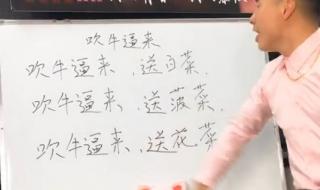 吹牛逼来
吹牛逼来，送白菜.
吹牛逼来、送菠菜.
吹牛逼来、送花菜